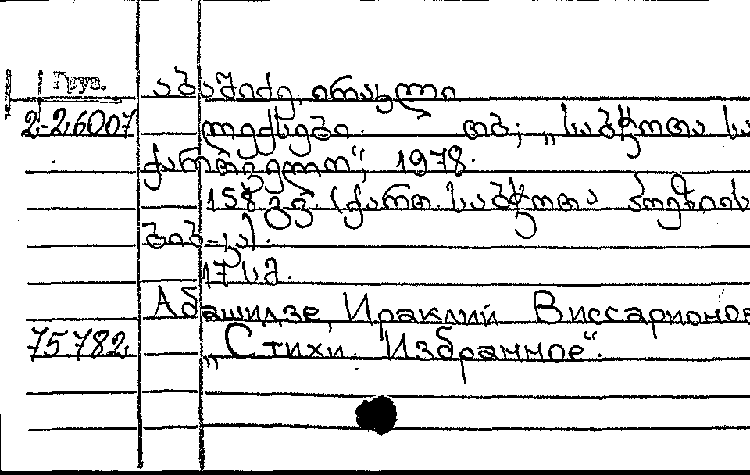 Груз.
აბაშიძე, ირაკლი
2.-2.6007 ლექსები. თბ., „საბჭოთა სა
ქართველო“, 1978.
158 გვ. (ქართ. საბჭოთა პოეზიის
ბიბ-კა).
17 სმ.
Абашидзе, Ираклий Виссарионов
75782. „Стихи. Избранное“.